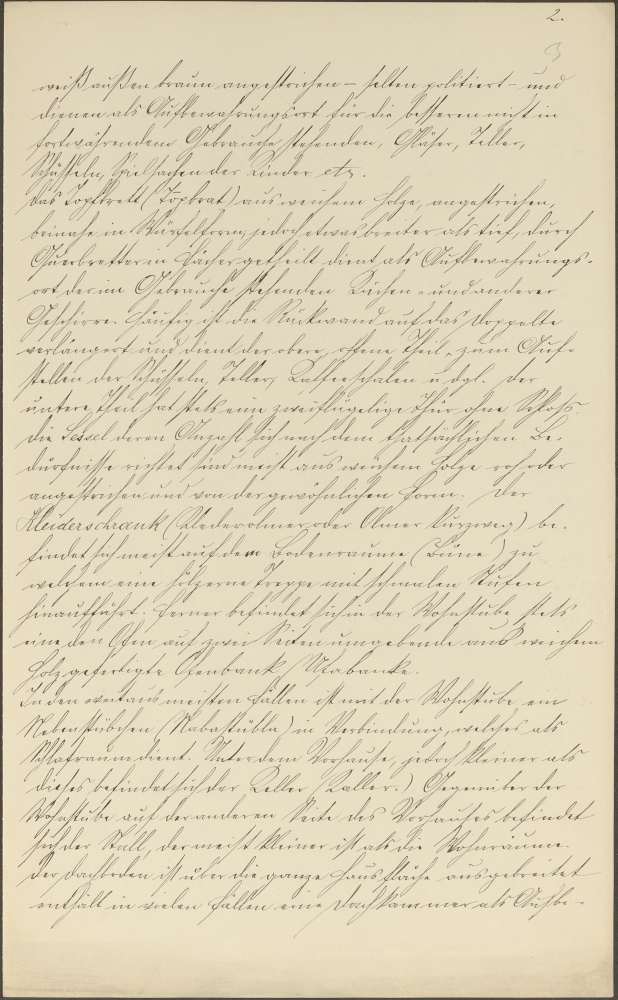 2.
3
weiß außen braun angestrichen – selten politiert – und
dienen als Aufbewahrungsort für die besseren nicht in
fortwährendem Gebrauche stehenden, Gläser, Teller,
Schüsseln, Spielsachen der Kinder etz.
Das Topfbrett (Topbrat) aus weichem Holze, angestrichen,
beinahe in Würfelform, jedoch etwas breiter als tief, durch
Querbretter in Fächer getheilt dient als Aufbewahrungs-
ort der im Gebrauche stehenden Küchen- und anderer
Geschirre. Häufig ist die Rückwand auf das Doppelte
verlängert und dient der obere, offene Theil, zum Auf-
stellen der Schüsseln, Teller, Kaffeeschalen u. dgl. Der
untere Theil hat stets eine zweiflügelige Thür ohne Schloß.
Die Sessel deren Anzahl sich nach dem thatsächlichen Be-
dürfnisse richtet sind meist aus weichem Holze roh oder
angestrichen und von der gewöhnlichen Form. Der
Kleiderschrank (Klederolmer oder Olmer kurzweg) be-
findet sich meist auf dem Bodenraume (Büne) zu
welchem eine hölzerne Treppe mit schmalen Stufen
hinaufführt. Ferner befindet sich in der Wohnstube stets
eine den Ofen auf zwei Seiten umgebende aus weichem
Holz gefertigte Ofenbank /
In den weitaus meisten Fällen ist mit der Wohnstube ein
Nebenstübchen (Nabastübla) in Verbindung, welches als
Schlafraum dient. Unter dem Vorhause, jedoch kleiner als
dieses befindet sich der Keller (Kaller.) Gegenüber der
Wohnstube auf der anderen Seite des Vorhauses befindet
sich der Stall, der meist kleiner ist als die Wohnräume.
Der Dachboden ist über die ganze Hausfläche ausgebreitet
enthält in vielen Fällen eine Dachkammer als Aufbe-